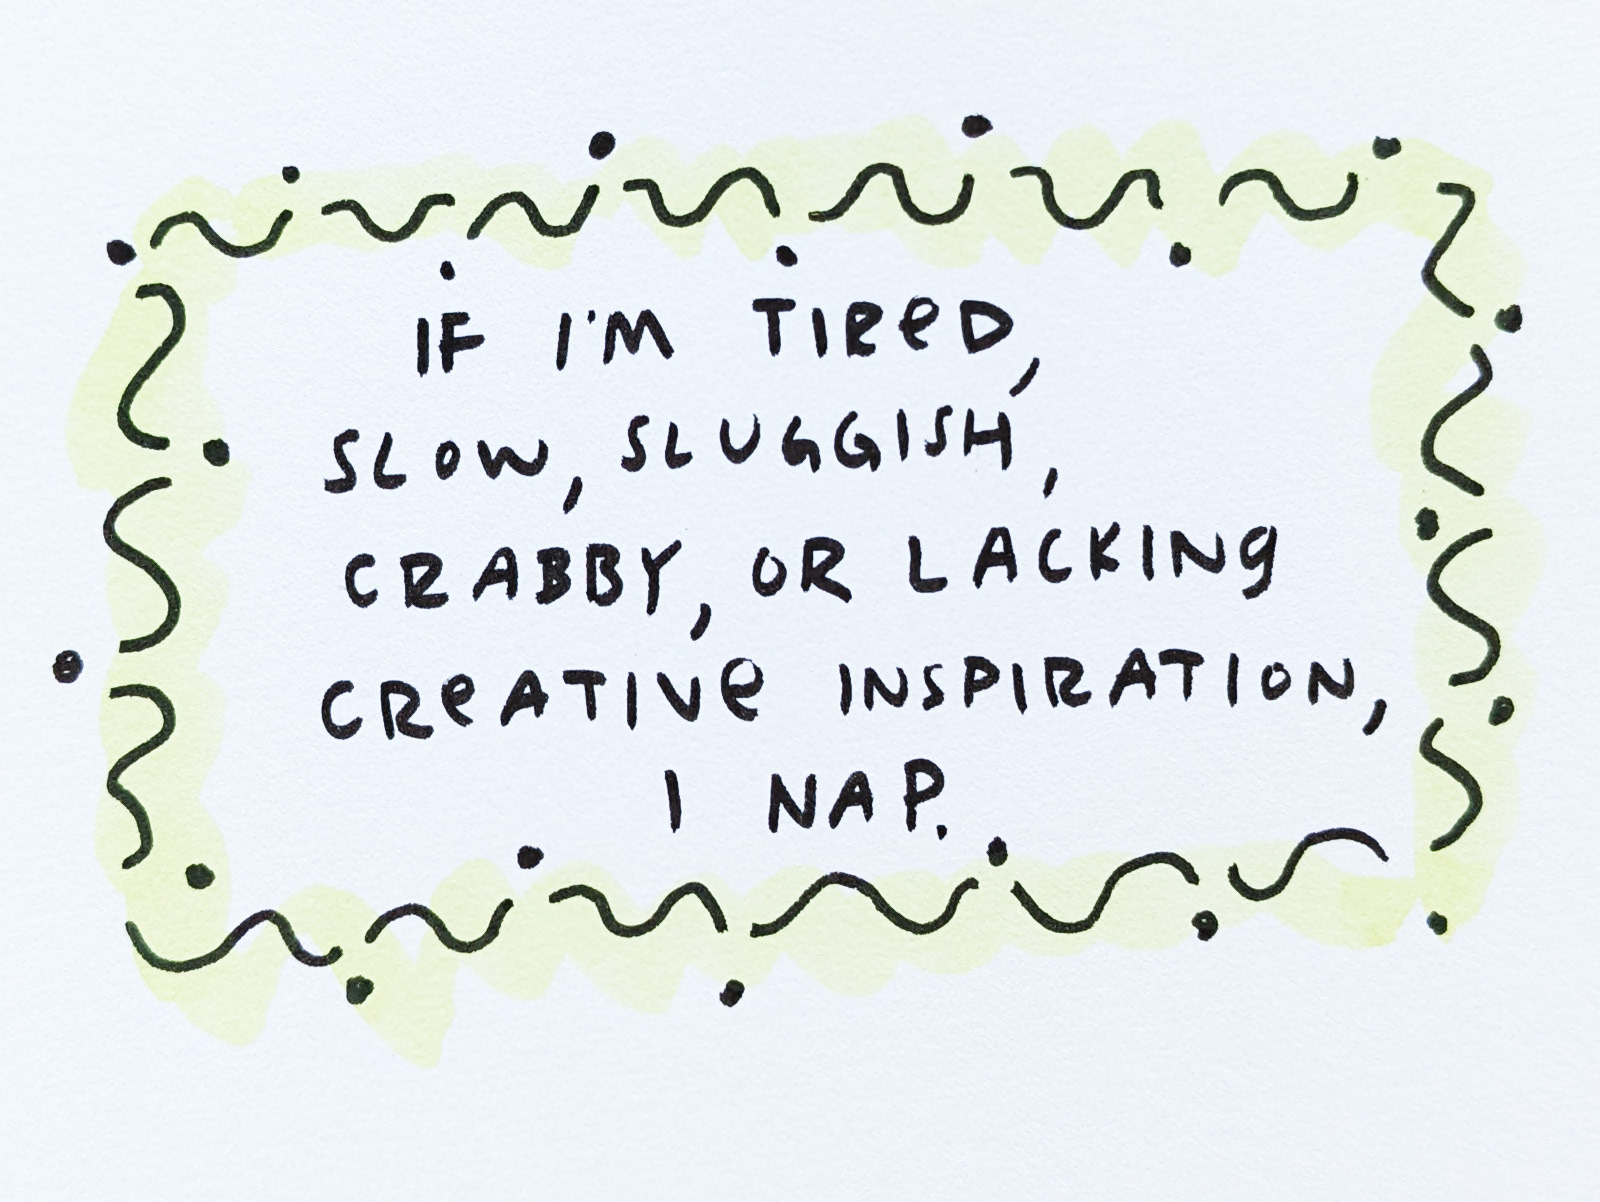 IF I'M TIReD,
SLOW, SLUGGISH,
CRABBY, OR LACKING
CReATIVe INSPIRATION,
I NAP.